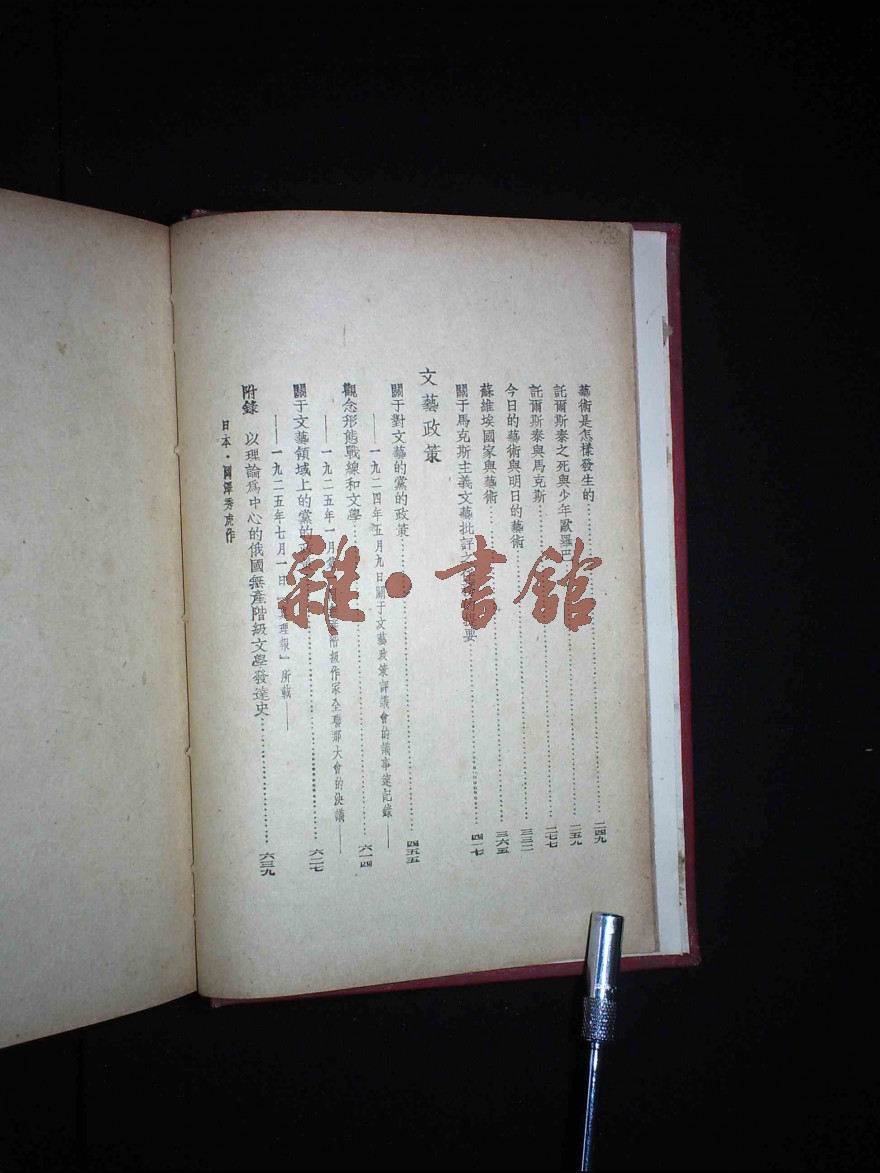 藝術是怎樣發生的……二四九
託爾斯泰之死與少年歐羅巴……二五九
託爾斯泰與馬克斯……二七七
今日的藝術與明日的藝術……三三二
蘇維埃國家與藝術……三六五
關于馬克斯主義文藝批評之任務的提要……四一七
文藝政策
關于對文藝的黨的政策……四五五
——一九二四年五月九日關于文藝政策評議會的議事速記錄——
觀念形態戰線和文學……六一四
——一九二五年一月 階級作家全聯邦大會的決議——
關于文藝領域上的黨的政策……六二七
——一九二五年七月一日『真理報』所載——
附錄 以理論爲中心的俄國無產階級文學發達史……六三九
日本·岡澤秀虎作
雜·書館